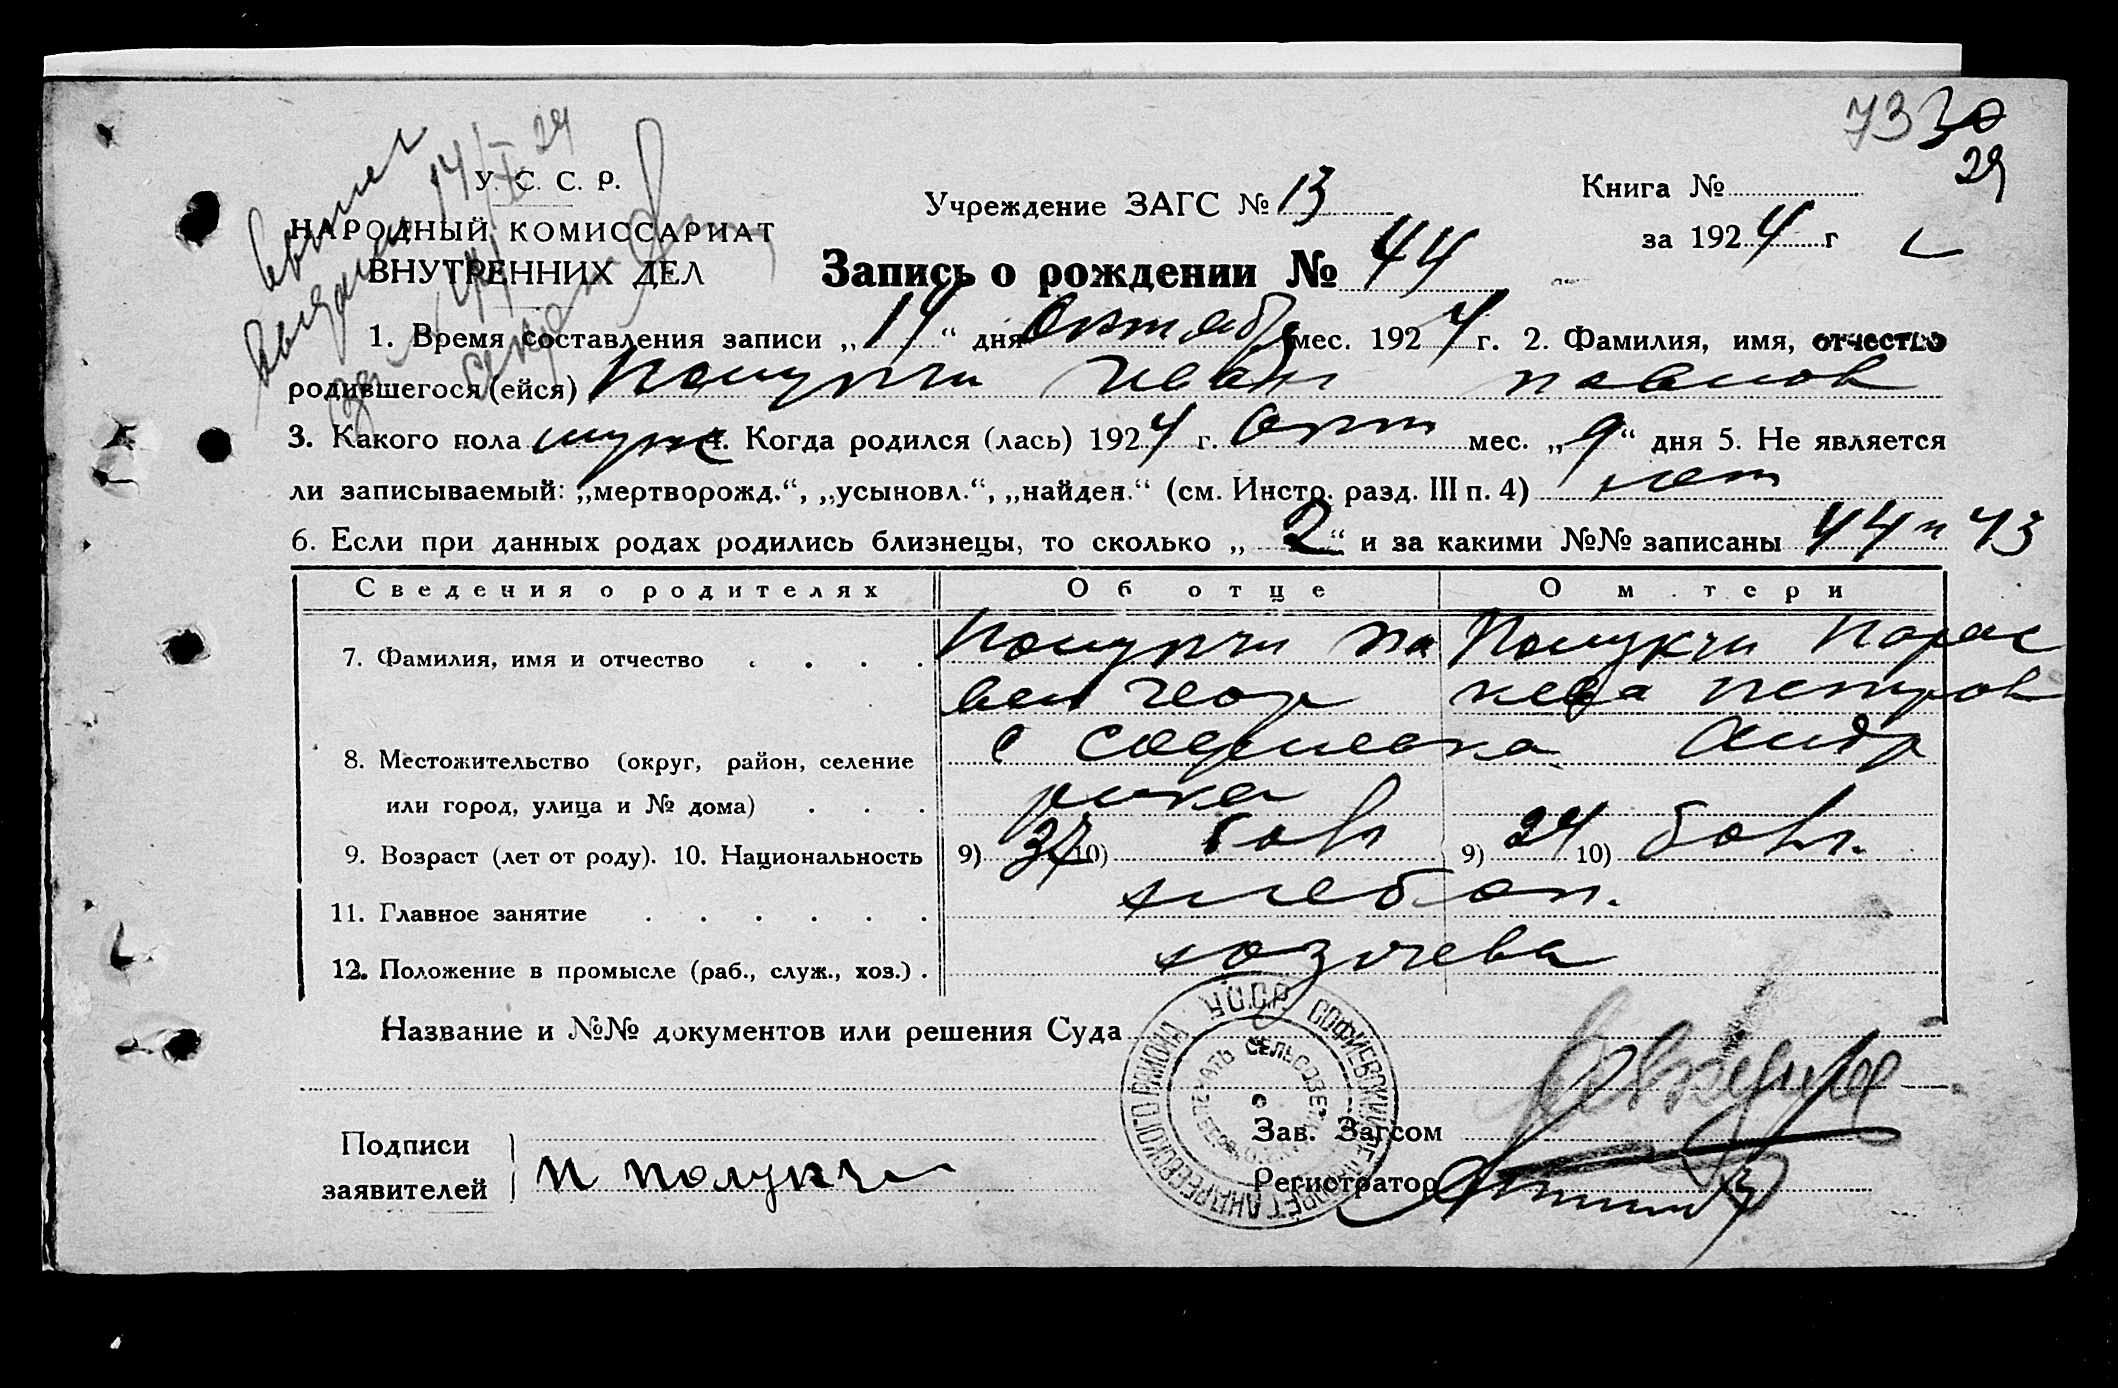 73 30
29
У. С. С. Р.
НАРОДНЫЙ КОМИССАРИАТ
ВНУТРЕННИХ ДЕЛ
Учреждение ЗАГС № 13
Книга №
за 1924 г
Запись о рождении № 44
1. Время составления записи „14“ дня Октябр мес. 1924 г. 2. Фамилия, имя, отчество
родившегося (ейся) Полукчи Иван Павлов
3. Какого пола муж 4. Когда родился (лась) 1924 г. Окт мес. „9“ дня 5. Не является
ли записываемый: „мертворожд.“, „усыновл.“, „найден.“ (см. Инстр. разд. III п. 4) нет
6. Если при данных родах родились близнецы, то сколько „2“ и за какими №№ записаны 44 и 43
Сведения о родителях Об отце О м.тери
7. Фамилия, имя и отчество Полукчи Па Полукчи Парас
вел Геор кева Петров
8. Местожительство (округ, район, селение с Софиевка Андр
или город, улица и № дома) р-на
9. Возраст (лет от роду). 10. Национальность 9) 37 10) болг 9) 24 10) болг.
11. Главное занятие хлебоп.
12. Положение в промысле (раб., служ., хоз.) хозяева
Название и №№ документов или решения Суда
У.С.С.Р. СОФИЕВСКИЙ АНДРЕЕВСКОГО РАЙОНА
Подписи
заявителей П Полукчи
Зав. Загсом
Регистратор